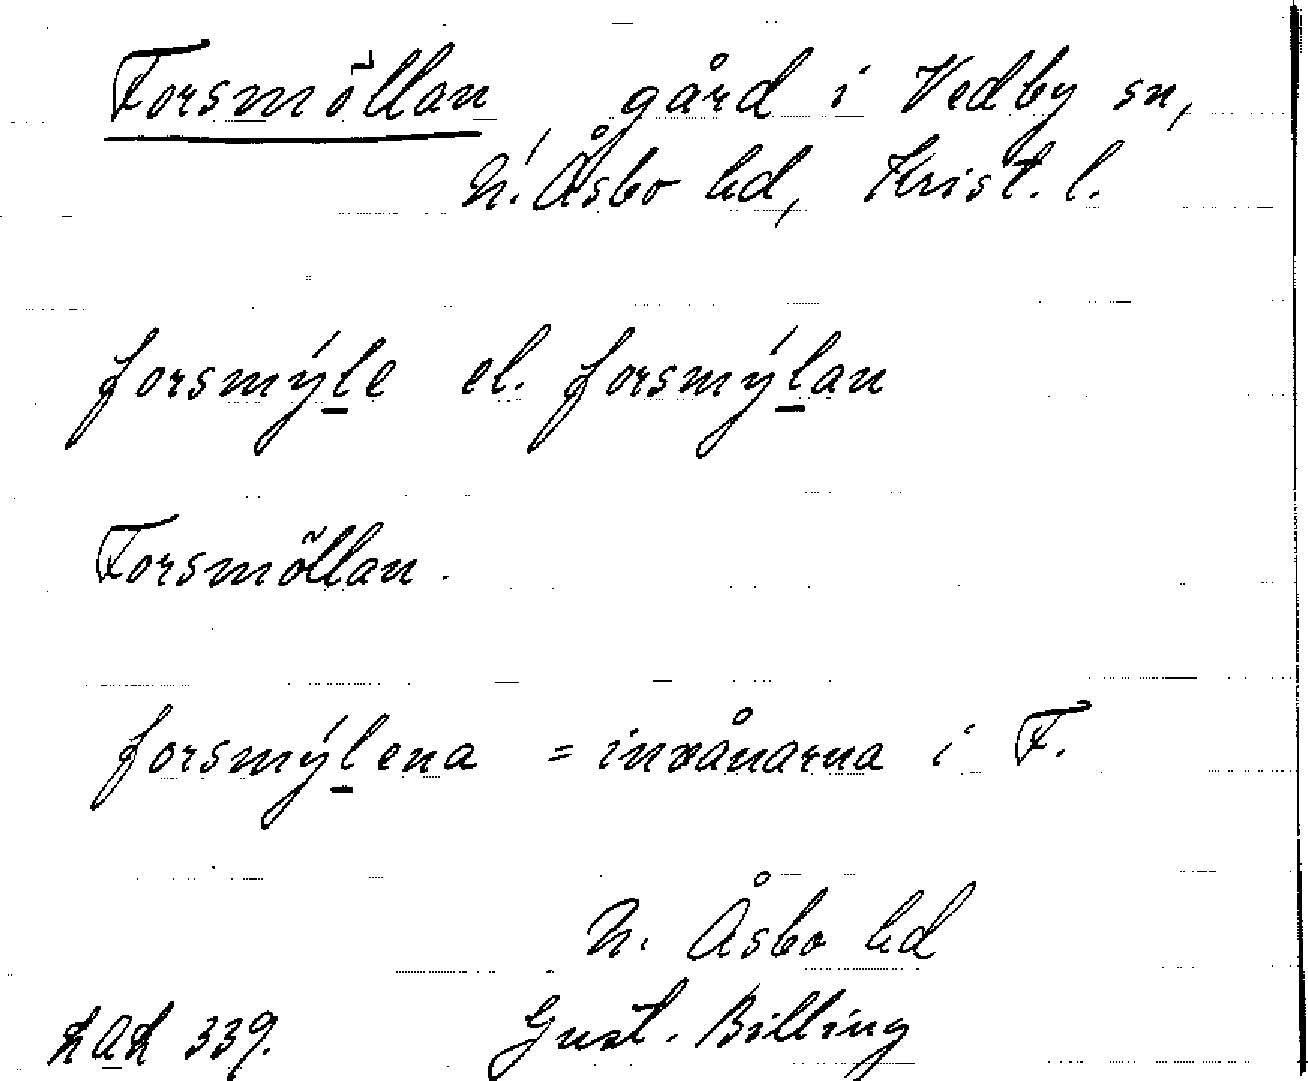 Forsmöllan gård i Vedby sn,
N. Åsbo hd, Krist. l.
forsmýl̲e el. forsmýl̲an
Forsmöllan.
forsmýl̲ena = invånarna i F.
N. Åsbo hd
339. Gust. Billing